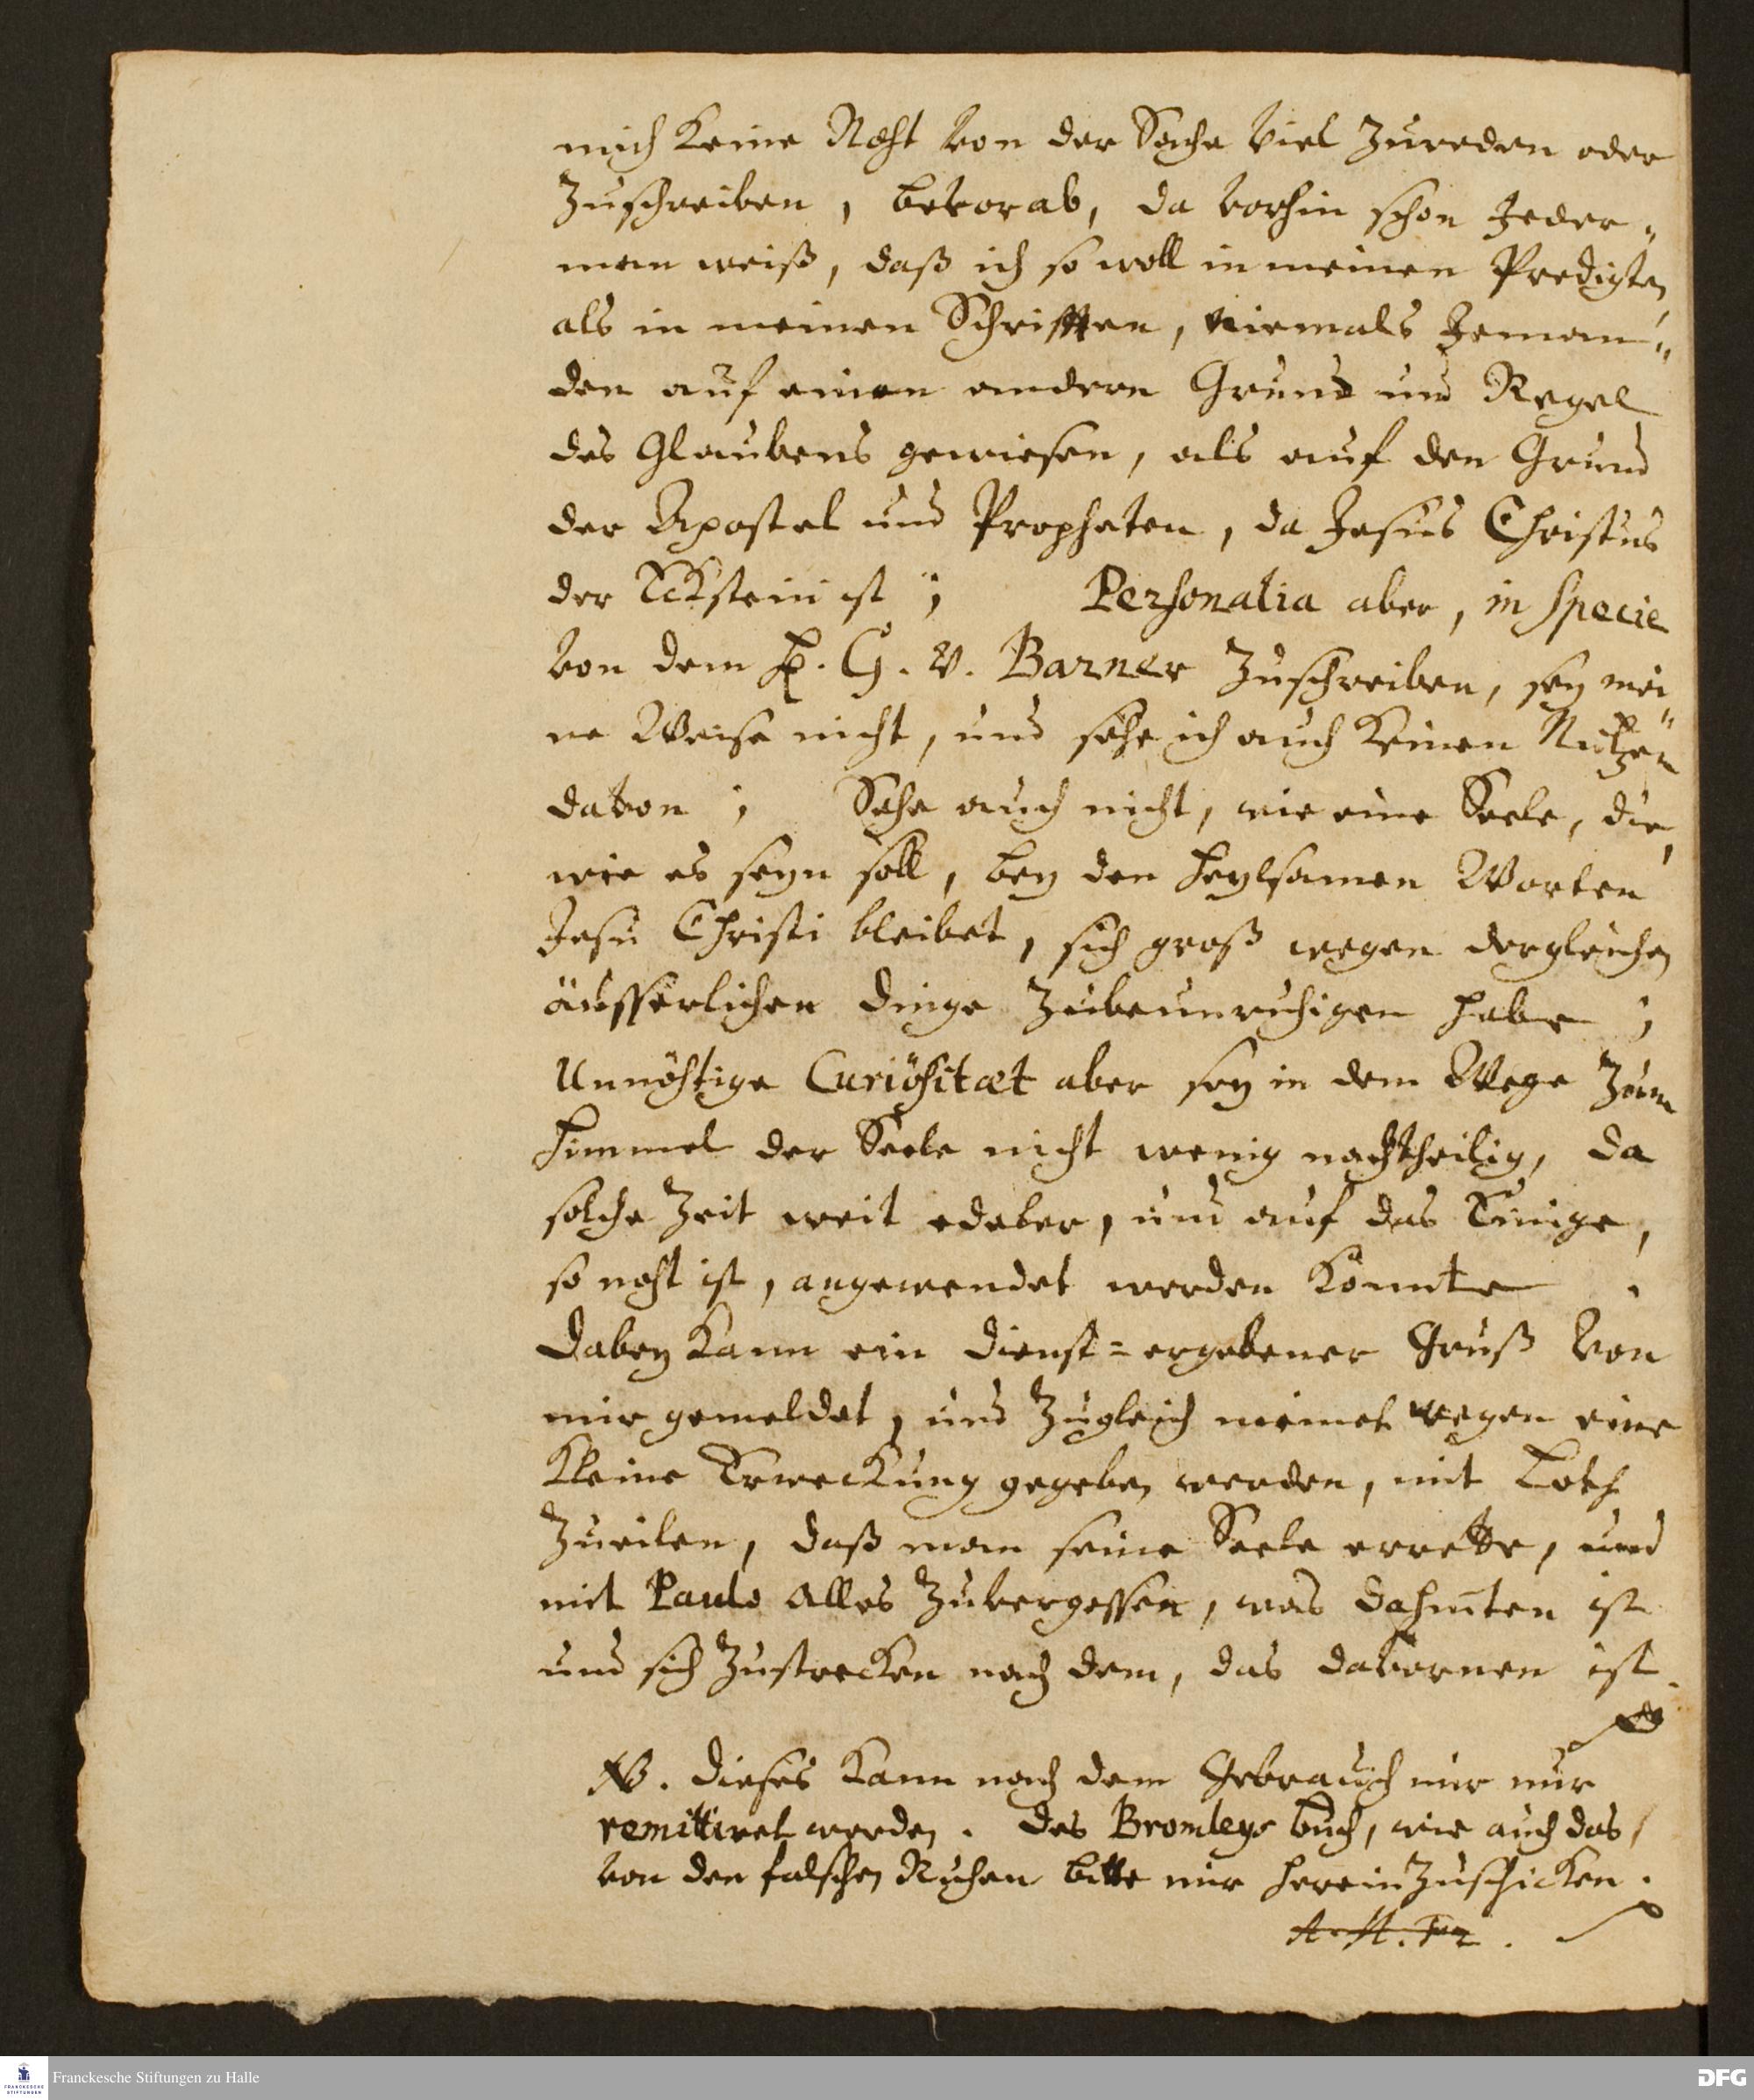 mich keine Noht von der Sache viel zureden oder
zuschreiben, bevorab, da vorhin schon Jeder„
man weiß, daß ich so woll in meinen Predigten,
als in meinen Schrifften, niemals Jeman„
den auf einen andern Grund und Regel
des Glaubens gewiesen, als auf den Grund
der Apostel und Propheten, da Jesus Christus
der Eckstein ist; Personalia aber, in specie
von dem H. G. v. Barner zuschreiben, sey mei„
ne Weise nicht, und sehe ich auch keinen Nutzen
davon; Sehe auch nicht, wie eine Seele, die,
wie es seyn soll, bey den heylsamen Worten
Jesu Christi bleibet, sich groß wegen dergleichen
äusserlichen Dinge zubeunruhigen habe;
Unnöhtige Curiösitæt aber sey in dem Wege zum
Himmel der Seele nicht wenig nachtheilig, da
solche Zeit weit edeler, und auf das Einige,
so noht ist, angewendet werden könnte.
Dabey kann ein dienst=ergebener Gruß von
mir gemeldet, und zugleich meinet wegen eine
kleine Erweckung gegeben werden, mit Loth
zueilen, daß man seine Seele errette, und
mit Paulo alles zuvergessen, was dahinten ist
und sich zustrecken nach dem, das davornen ist.
NB. Dieses kann nach dem Gebrauch mir nur
remittiret werden. Des Bromleys buch, wie auch das,
von den falschen Ruhen bitte mir hereinzuschicken.
A. H. Fr.
Franckesche Stiftungen zu Halle
FRANCKESCHE STIFTUNGEN
DFG